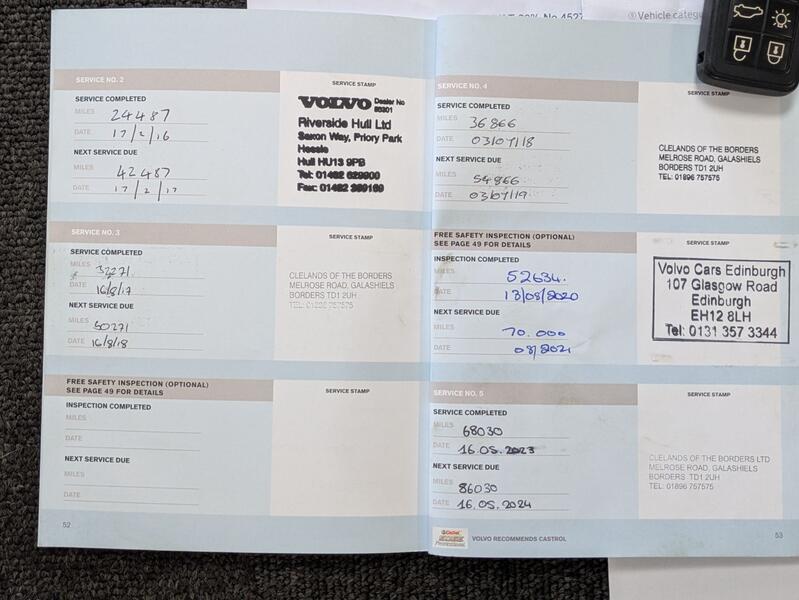 Vehicle categ
SERVICE NO. 2
SERVICE COMPLETED
MILES 24487
DATE 17/2/16
NEXT SERVICE DUE
MILES 42487
DATE 17/2/17
SERVICE STAMP
VOLVO Dealer No
Riverside Hull Ltd
Saxon Way, Priory Park
Hessle
Hull HU13 9PB
Tel: 01482 629900
Fax:
SERVICE NO. 3
SERVICE COMPLETED
MILES 32271
DATE 16/8/17
NEXT SERVICE DUE
MILES 50271
DATE 16/8/18
SERVICE STAMP
CLELANDS OF THE BORDERS
MELROSE ROAD, GALASHIELS
BORDERS TD1 2UH
FREE SAFETY INSPECTION (OPTIONAL)
SEE PAGE 49 FOR DETAILS
INSPECTION COMPLETED
MILES
DATE
NEXT SERVICE DUE
MILES
DATE
SERVICE STAMP
52
SERVICE NO. 4
SERVICE COMPLETED
MILES 36866
DATE 03/07/18
NEXT SERVICE DUE
MILES 54866
DATE 03/07/19
SERVICE STAMP
CLELANDS OF THE BORDERS
MELROSE ROAD, GALASHIELS
BORDERS TD1 2UH
TEL: 01896 757575
FREE SAFETY INSPECTION (OPTIONAL)
SEE PAGE 49 FOR DETAILS
INSPECTION COMPLETED
MILES 52634.
DATE 13/08/2020
NEXT SERVICE DUE
MILES 70.000
DATE 08/2021
SERVICE STAMP
Volvo Cars Edinburgh
107 Glasgow Road
Edinburgh
EH12 8LH
Tel: 0131 357 3344
SERVICE NO. 5
SERVICE COMPLETED
MILES 68030
DATE 16.05.2023
NEXT SERVICE DUE
MILES 86030
DATE 16.05.2024
SERVICE STAMP
CLELANDS OF THE BORDERS LTD
MELROSE ROAD, GALASHIELS
BORDERS TD1 2UH
TEL: 01896 757575
Castrol
Professional
VOLVO RECOMMENDS CASTROL
53